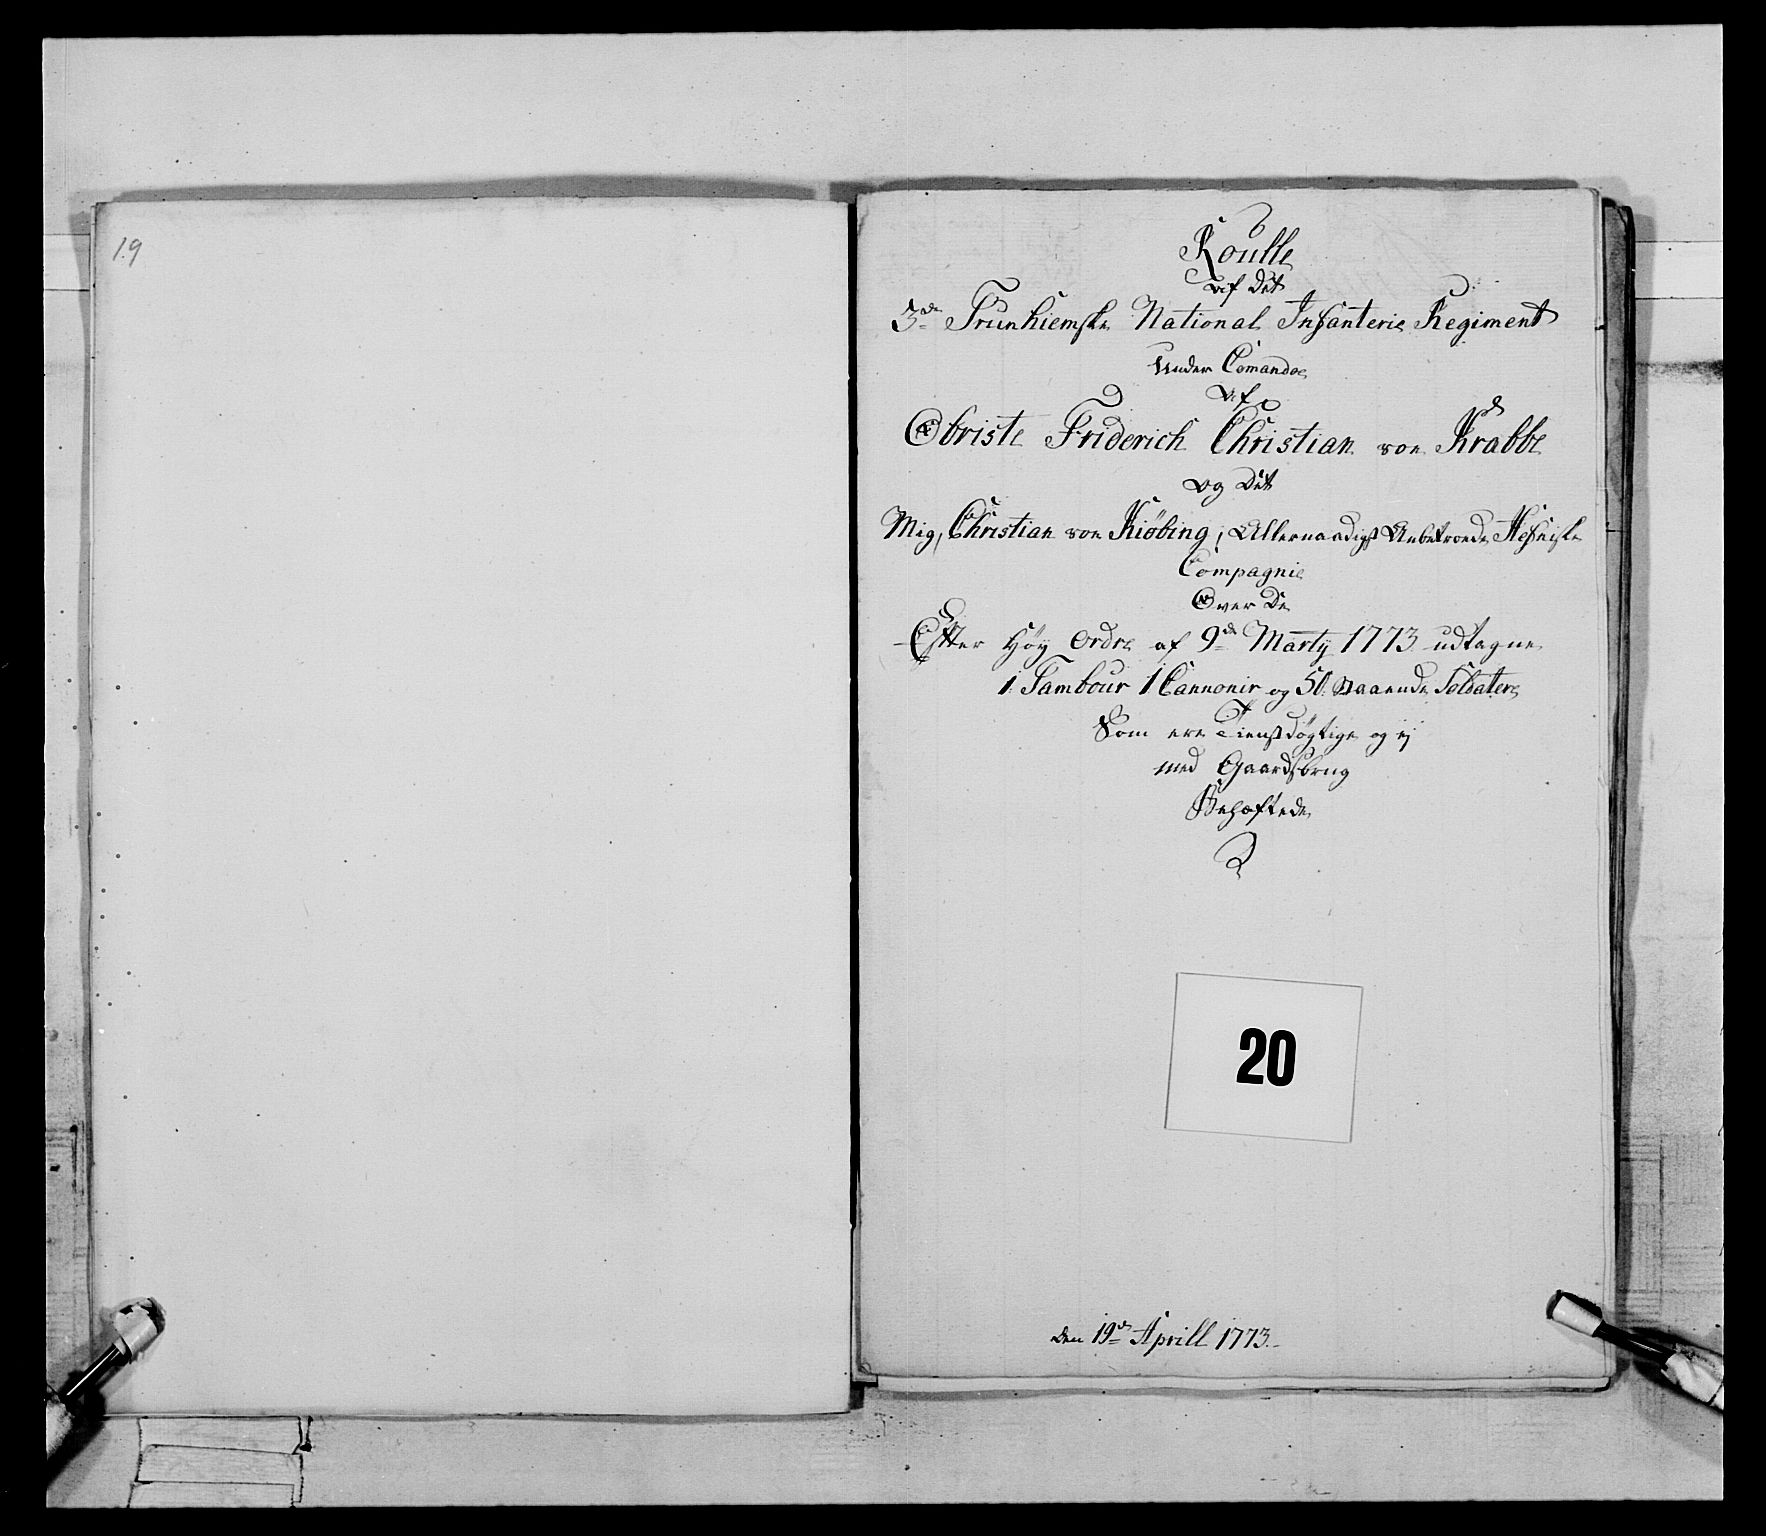 19
Roulle
af det
3de Trunhiemske National Infanterie Regiment
Under Comando
af
Obriste Friderich Christian von Krabbe
og det
Mig, Christian von Kiøbing, Allernaadigst Anbetroede Hefniske
Compagnie
Over De
Efter Høy Ordre af 9de Marty 1773 udtagne
1 Tambour 1 Cannonir og 50 Staaende Soldater
Som ere Tienstdøgtige og ej
med Gaardsbrug
Behæftede
20
den 19de Aprill 1773.